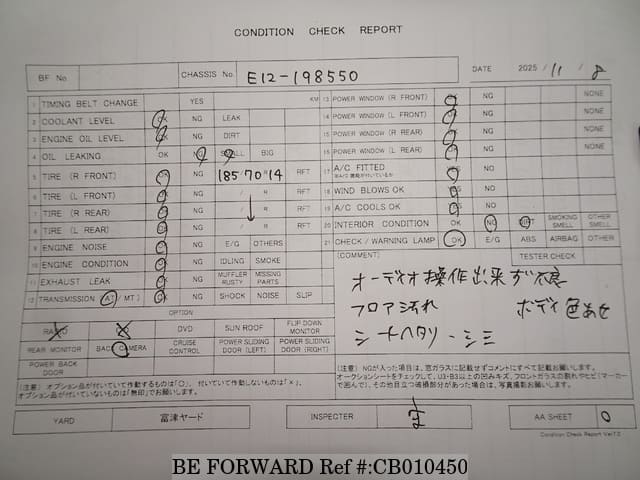 CONDITION CHECK REPORT
BF No
CHASSIS No. E12-198550
DATE 2025 / 11 / 8
1 TIMING BELT CHANGE YES KM
2 COOLANT LEVEL OK NG LEAK
3 ENGINE OIL LEVEL OK NG DIRT
4 OIL LEAKING OK NG SMALL BIG
5 TIRE (R FRONT) OK NG 185/70 R 14 RFT
6 TIRE (L FRONT) OK NG / R RFT
7 TIRE (R REAR) OK NG / R RFT
8 TIRE (L REAR) OK NG / R RFT
9 ENGINE NOISE OK NG E/G OTHERS
10 ENGINE CONDITION OK NG IDLING SMOKE
11 EXHAUST LEAK OK NG MUFFLER RUSTY MISSING PARTS
12 TRANSMISSION (AT / MT) OK NG SHOCK NOISE SLIP
13 POWER WINDOW (R FRONT) OK NG NONE
14 POWER WINDOW (L FRONT) OK NG NONE
15 POWER WINDOW (R REAR) OK NG NONE
16 POWER WINDOW (L REAR) OK NG NONE
17 A/C FITTED YES NO
18 WIND BLOWS OK YES NO
19 A/C COOLS OK YES NO
20 INTERIOR CONDITION OK NG DIRT SMOKING SMELL OTHER SMELL
21 CHECK / WARNING LAMP OK E/G ABS AIRBAG OTHER
TESTER CHECK
(COMMENT)
オーディオ操作出来ず不良
フロア汚れ ボディ色あせ
シートヘタリ・シミ
OPTION
RADIO DVD SUN ROOF FLIP DOWN MONITOR
REAR MONITOR BACK CAMERA CRUISE CONTROL POWER SLIDING DOOR (LEFT) POWER SLIDING DOOR (RIGHT)
POWER BACK DOOR
(注意) オプション品が付いていて作動するものは「○」、付いていて作動しないものは「×」、
オプション品が付いていないものは「無印」でお願いします。
(注意) NGが入った項目は、窓ガラスに記載せずコメントにすべて記載お願いします。
オークションシートをチェックして、U3・B3以上の凹みキズ、フロントガラスの割れやヒビ(マーカー
で囲んで)、その他目立つ破損部分があった場合は、写真撮影お願いします。
YARD 富津ヤード
INSPECTER
AA SHEET 0
Condition Check Report Ver7.2
BE FORWARD Ref #:CB010450